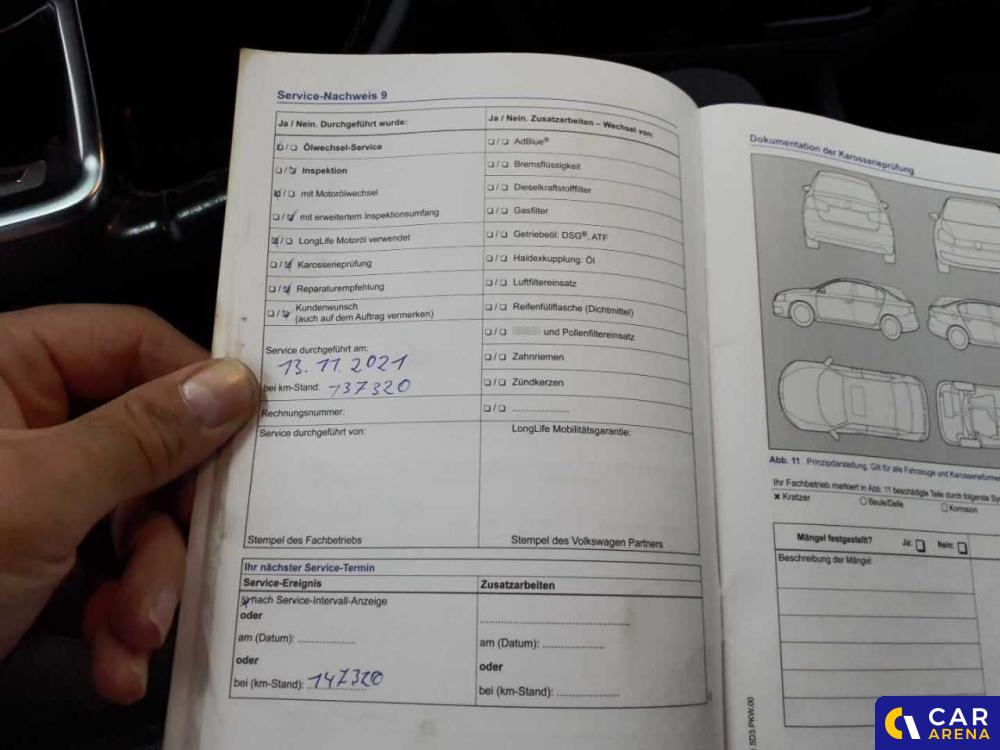 Service-Nachweis 9
Ja / Nein. Durchgeführt wurde:
Ölwechsel-Service
Inspektion
mit Motorölwechsel
mit erweitertem Inspektionsumfang
LongLife Motoröl verwendet
Karosserieprüfung
Reparaturempfehlung
Kundenwunsch
(auch auf dem Auftrag vermerken)
Service durchgeführt am:
13.11.2021
bei km-Stand: 137320
Rechnungsnummer:
Service durchgeführt von:
Stempel des Fachbetriebs
Ja / Nein. Zusatzarbeiten – Wechsel von:
AdBlue®
Bremsflüssigkeit
Dieselkraftstofffilter
Gasfilter
Getriebeöl: DSG®, ATF
Haldexkupplung: Öl
Luftfiltereinsatz
Reifenfüllflasche (Dichtmittel)
und Pollenfiltereinsatz
Zahnriemen
Zündkerzen
LongLife Mobilitätsgarantie:
Stempel des Volkswagen Partners
Ihr nächster Service-Termin
Service-Ereignis
nach Service-Intervall-Anzeige
oder
am (Datum):
oder
bei (km-Stand): 147320
Zusatzarbeiten
am (Datum):
oder
bei (km-Stand):
Dokumentation der Karosserieprüfung
Abb. 11 Prinzipdarstellung. Gilt für alle Fahrzeuge und Karosserieformen
Ihr Fachbetrieb markiert in Abb. 11 beschädigte Teile durch folgende
Kratzer
Beule/Delle
Korrosion
Mängel festgestellt? Ja: Nein:
Beschreibung der Mängel:
5D3.PKW.00
CAR
ARENA